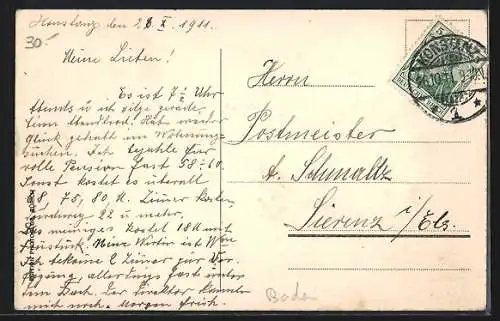 Konstanz den 26 X. 1911.
30.-
Meine Lieben!
Es ist 7 1/2 Uhr
Abends u ich sitze gerade
beim Abendbrod. Habe
Glück gehabt im Wohnung-
suchen. Ich bezahle für
volle Pension fast 58-60.
Sonst kostet es überall
8, 75, 80 M. Zimmer kosten
22 u mehr.
wenigen kostet 18 M mit
Frühstück. Meine Wirtin ist
Ich bekomme 2 Zimmer zur Ver-
fügung, allerdings fast unter
dem Dach. Der Direktor
mich noch. Morgen früh.
Herrn
Postmeister
A. Schmaltz
Sierenz i/Els.
Baden
KONSTANZ
26.10.11